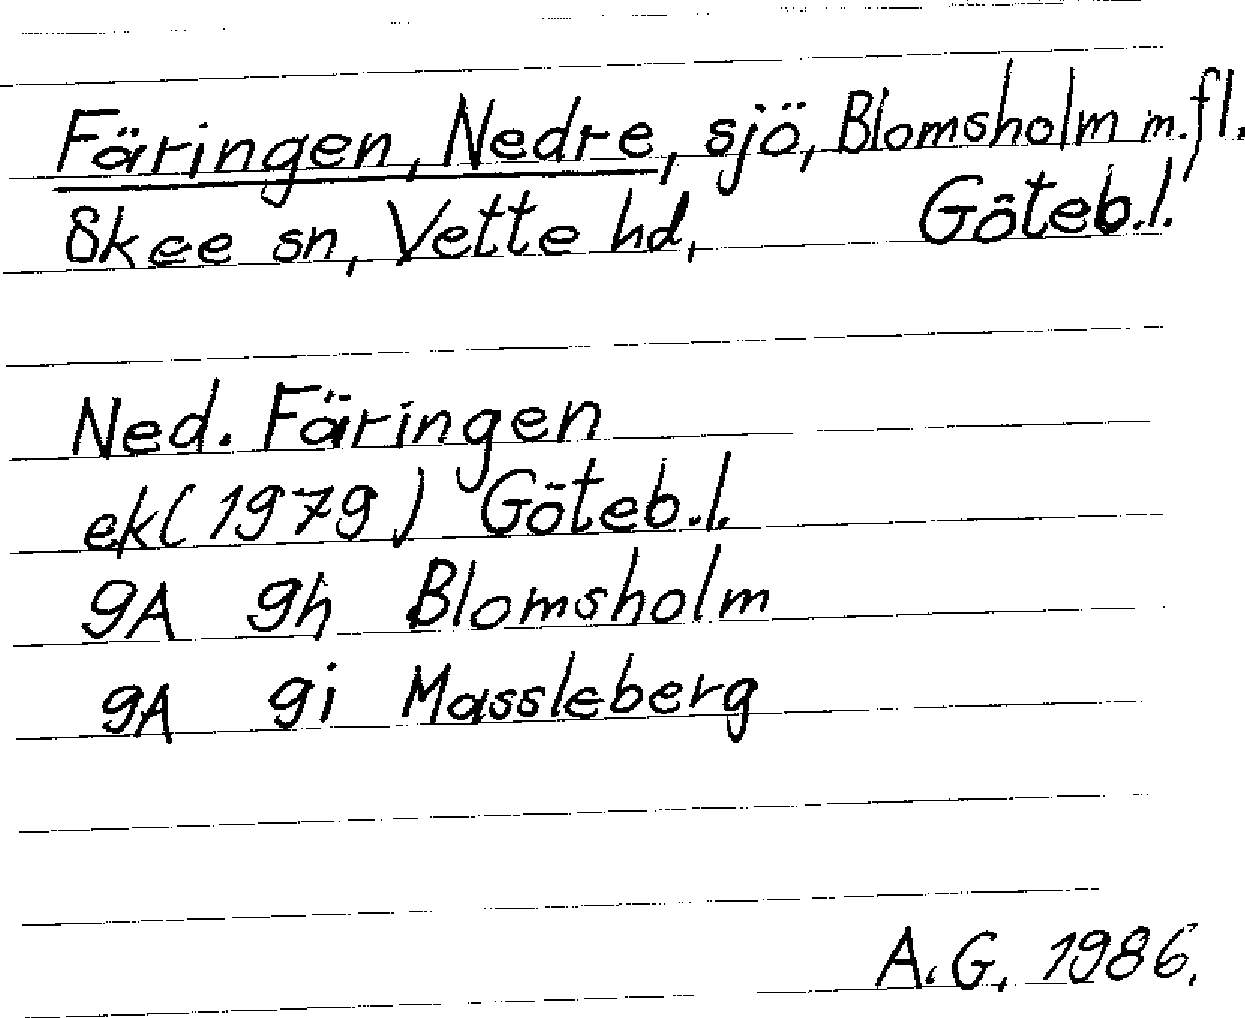 Färingen, Nedre, sjö, Blomsholm m.fl.
Skee sn, Vette hd, Göteb.l.
Ned. Färingen
ek (1979) Göteb.l.
9A 9h Blomsholm
9A 9i Massleberg
A.G. 1986.